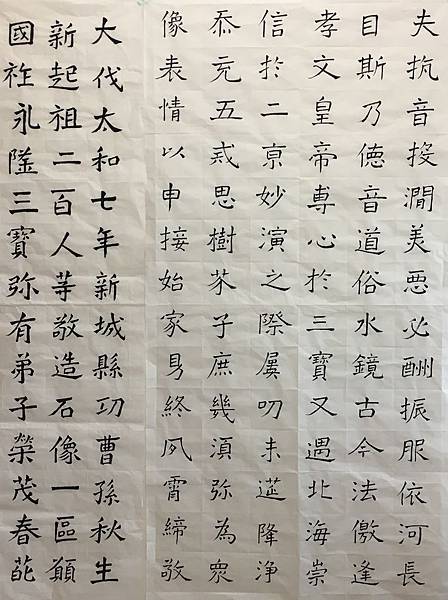 夫抗音投澗美悪必酬振服依河長
目斯乃德音道俗水鏡古今法儌逢
孝文皇帝專心於三寶又遇北海崇
信於二京妙演之際屢叨末莚降淨
忝充五戒思樹芥子庶幾須弥為衆
像表情以申接始家易終夙霄締敬
大伐太和七年新城縣功曹孫秋生
新起祖二百人等敬造石像一區願
國祚永隆三寶弥有弟子榮茂春葩